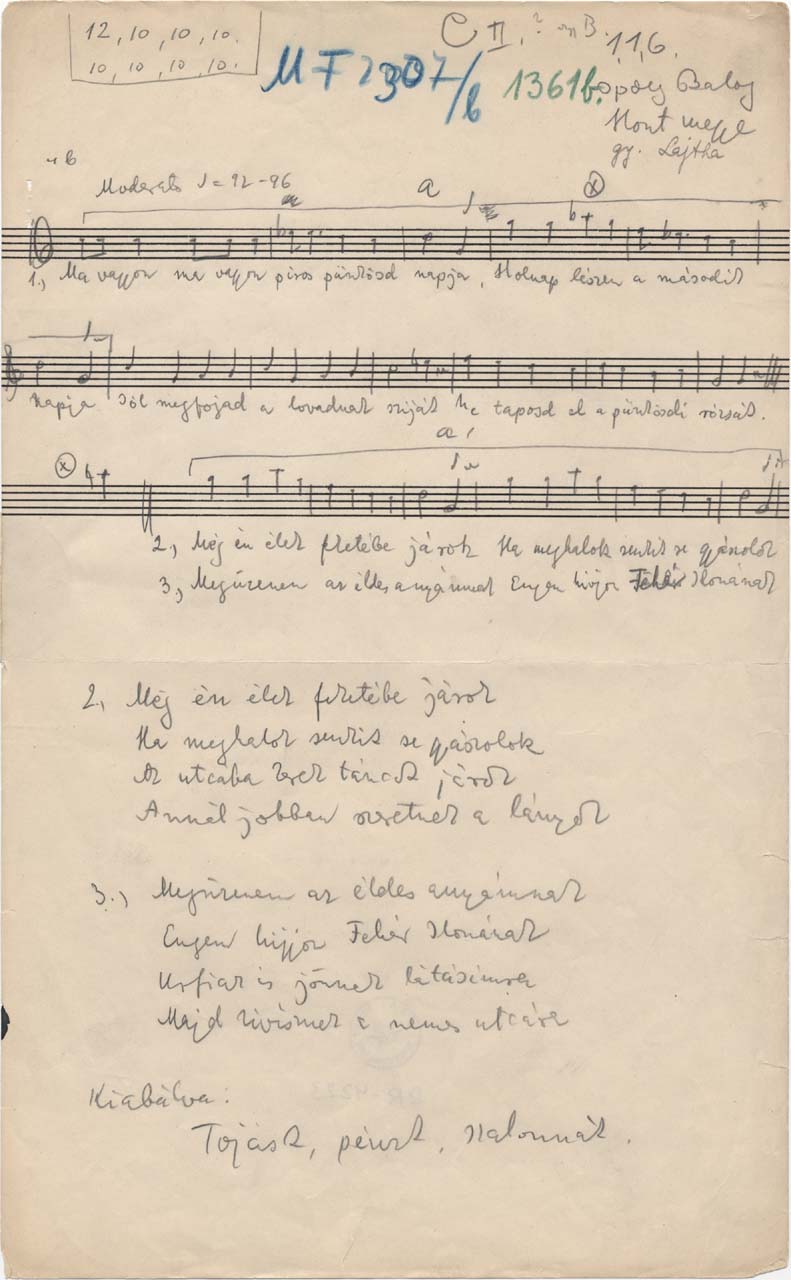 12, 10, 10, 10.
10, 10, 10, 10.
C II. ? B. 1,1,6.
MF 2307/b
1361b.
Ipoly Balog
Hont megye
gy. Lajtha
Moderato ♩= 92-96
a
x
1., Ma vagyon ma vagyon piros pünkösd napja, Holnap lészen a második
napja Jól megfojad a lovadnak sziját Ne taposd el a pünkösdi rózsát.
a'
x
2., Még én élek feketébe járok Ha meghalok senkit se gyászolok
3, Megüzenem az éldes anyámnak Engen hijjon Fehér Ilonának
2., Még én élek feketébe járok
Ha meghalok senkit se gyászolok
Az utcába kerek táncot járok
Annál jobban szeretnek a lányok
3., Megüzenem az éldes anyámnak
Engen hijjon Fehér Ilonának
Urfiak is jönnek látásimra
Majd kivisznek a nemes utcára
Kiabálva:
Tojást, pénzt, szalonnát.